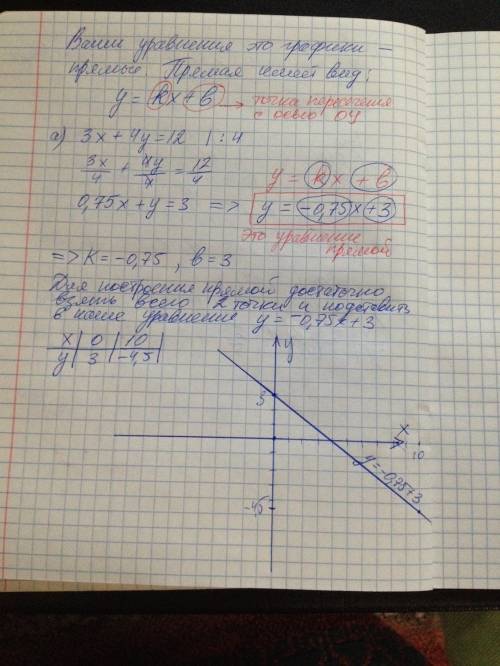 Ваши уравнения это графики –
прямые. Прямая имеет вид:
y = kx + b → точка пересечения
с осью ОУ
а) 3x + 4y = 12 | : 4
3x/4 + 4y/4 = 12/4
y = kx + b
0,75x + y = 3 => y = -0,75x + 3
Это уравнение
прямой
=> K = -0,75 , b = 3
Для построения прямой достаточно
взять всего 2 точки и подставить
в наше уравнение y = -0,75x + 3
x | 0 | 10
y | 3 | -4,5
y
3
x
10
y = -0,75+3
-4,5